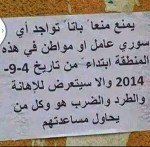 يمنع منعاً باتاً تواجد أي
سوري عامل او مواطن في هذه
المنطقة ابتداءً من تاريخ 4-9-
2014 والا سيتعرض للإهانة
والطرد والضرب هو وكل من
يحاول مساعدتهم